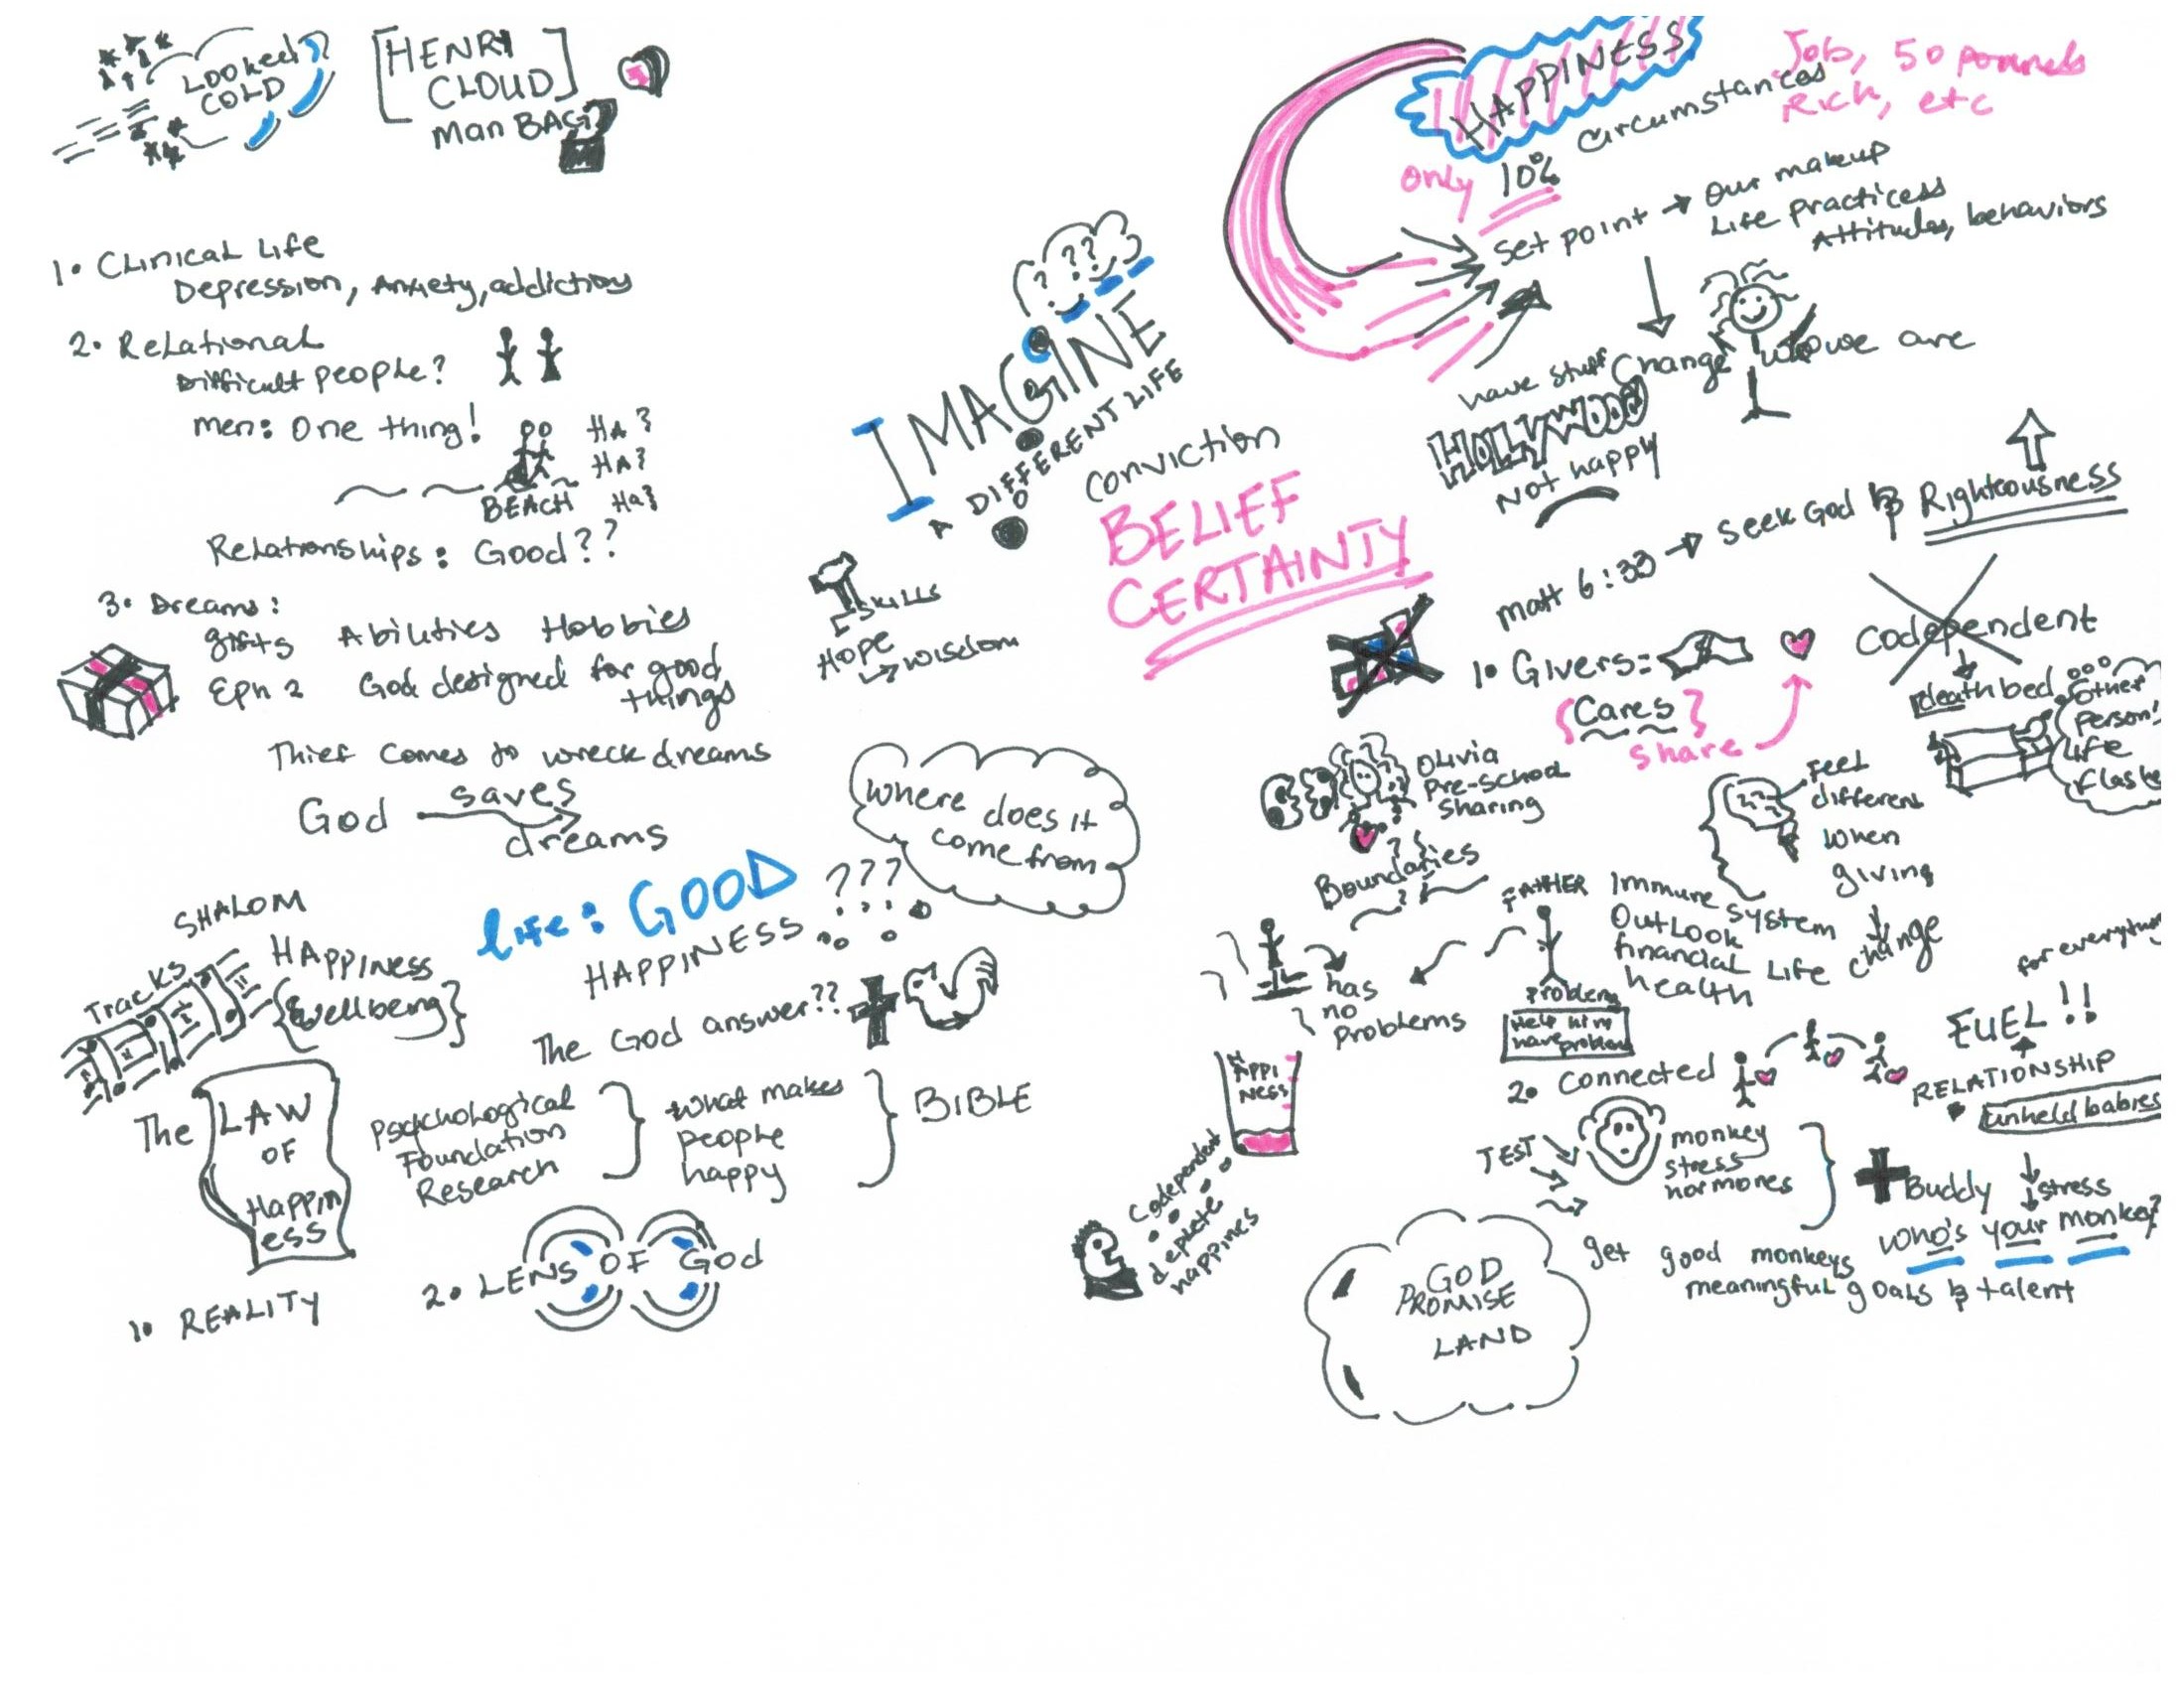 LOOKed
COLD
HENRY
CLOUD
Man BAG?
1. CLinicaL Life
Depression, Anxiety, addiction
2. ReLationaL
Difficult people?
men: One thing!
HA
HA
Ha
BEACH
ReLationships: Good??
3. Dreams:
gifts Abilities Hobbies
Eph 2 God designed for good
things
Thief comes to wreck dreams
God saves
dreams
SHALOM
Tracks
HAPPINESS
{wellbeing}
Life: GOOD
HAPPINESS ???
where does it
come from
The God answer??
The LAW
OF
Happin
ess
Psychological
Foundation
Research
what makes
people
happy
BIBLE
1. REALITY
2. LENS OF God
? ???
IMAGINE
A DIFFERENT LIFE
SKILLS
Hope
wisdom
conviction
BELIEF
CERTAINTY
HAPPINESS
Job, 50 pounds
Rich, etc
only 10% circumstances
Set point → Our makeup
Life practicess
Attitudes, behaviors
have stuff
Change who we are
HOLLYWOOD
Not happy
Matt 6:33 → Seek God & Righteousness
1. Givers:
{Cares}
share
Codependent
deathbed
other
person's
Life
OLivia
Pre-school
Sharing
Boundaries
Feel
different
when
giving
change
FATHER
has
no
problems
problem
Help him
have problem
Immune
system
OutLook
financial Life
health
HAPPI
NESS
Codependent
deplete
happines
2. Connected
for everything
FUEL!!
RELATIONSHIP
unheld babies
TEST
monkey
stress
hormones
Buddy
stress
who's your monkey?
get good monkeys
meaningful goals & talent
GOD
PROMISE
LAND